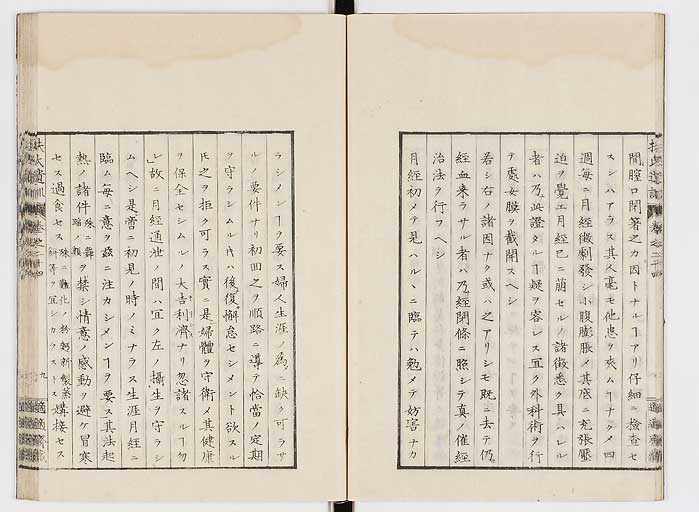 間膣口閉著之カ因トナルヿアリ仔細ニ檢査セ
スンハアラス其人毫モ他患ヲ夾ムヿナクメ四
週毎ニ月經徴劇發シ小腹膨脹メ其底ニ充張壓
迫ヲ覺エ月經已ニ萠セルノ諸徴悉ク具ハレル
者ハ乃此證タルヿ疑ヲ容レス宜ク外科術ヲ行
テ處女膜ヲ截開スヘシ
若シ右ノ諸因ナク或ハ之アリシモ既ニ去テ仍
經血來ラサル者ハ乃經閉條ニ照シテ真ノ催經
治法ヲ行フヘシ
月經初メテ見ハルヽニ臨テハ勉メテ妨害ナカ
ラシメンヿヲ要ス婦人生涯ノ為ニ缺ク可ラサ
ルノ要件ナリ初回之ヲ順路ニ導テ恰當ノ定期
ヲ守ラシムル片ハ後復懈怠セシメント欲スル
モ之ヲ拒ク可ラス實ニ是婦體ヲ守衛メ其健康
ヲ保全セシムルノ大吉利濟ナリ忽諸スルヿ勿
レ故ニ月經通泄ノ間ハ宜ク左ノ攝生ヲ守ラシ
ムヘシ是啻ニ初見ノ時ノミナラス生涯月經ニ
臨ム毎ニ意ヲ茲ニ注カシメンヿヲ要ス其法起
熱ノ諸件殊ニ舞踏ノ類ヲ禁シ情意ノ感動ヲ避ケ冒寒
セス過食セス殊ニ難化ノ麪新製蒸餅等ヲ宜シカラストス媾接セス